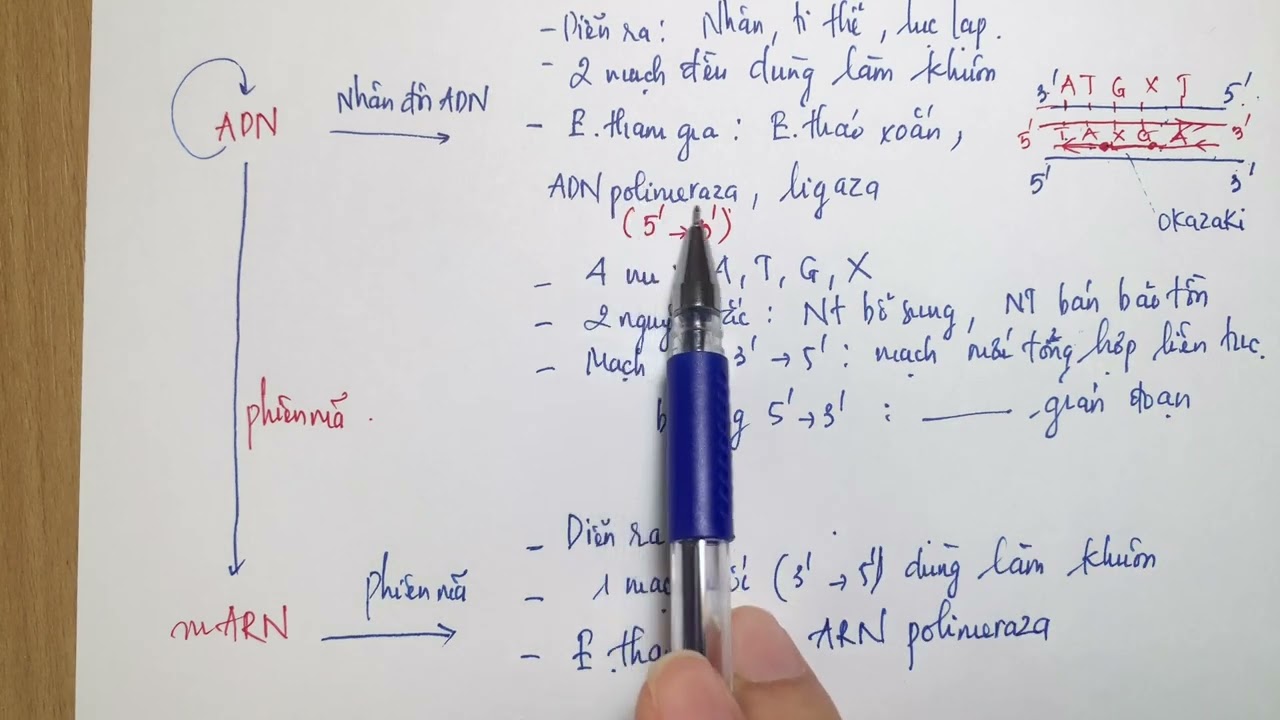 - Diễn ra: Nhân, ti thể, lục lạp.
- 2 mạch đều dùng làm khuôn
ADN
Nhân đôi ADN
- E. tham gia: E. tháo xoắn,
ADN polimeraza, ligaza
(5' → 3')
3' A T G X T 5'
5' T A X G A 3'
5' 3'
okazaki
- 4 nu: A, T, G, X
- 2 nguyên tắc: Nt bổ sung, NT bán bảo tồn
- Mạch 3' → 5': mạch mới tổng hợp liên tục.
5' → 3' : gián đoạn
phiên mã.
- Diễn ra
- 1 mạch (3' → 5') dùng làm khuôn
mARN
phiên mã
- E. tha ARN polimeraza